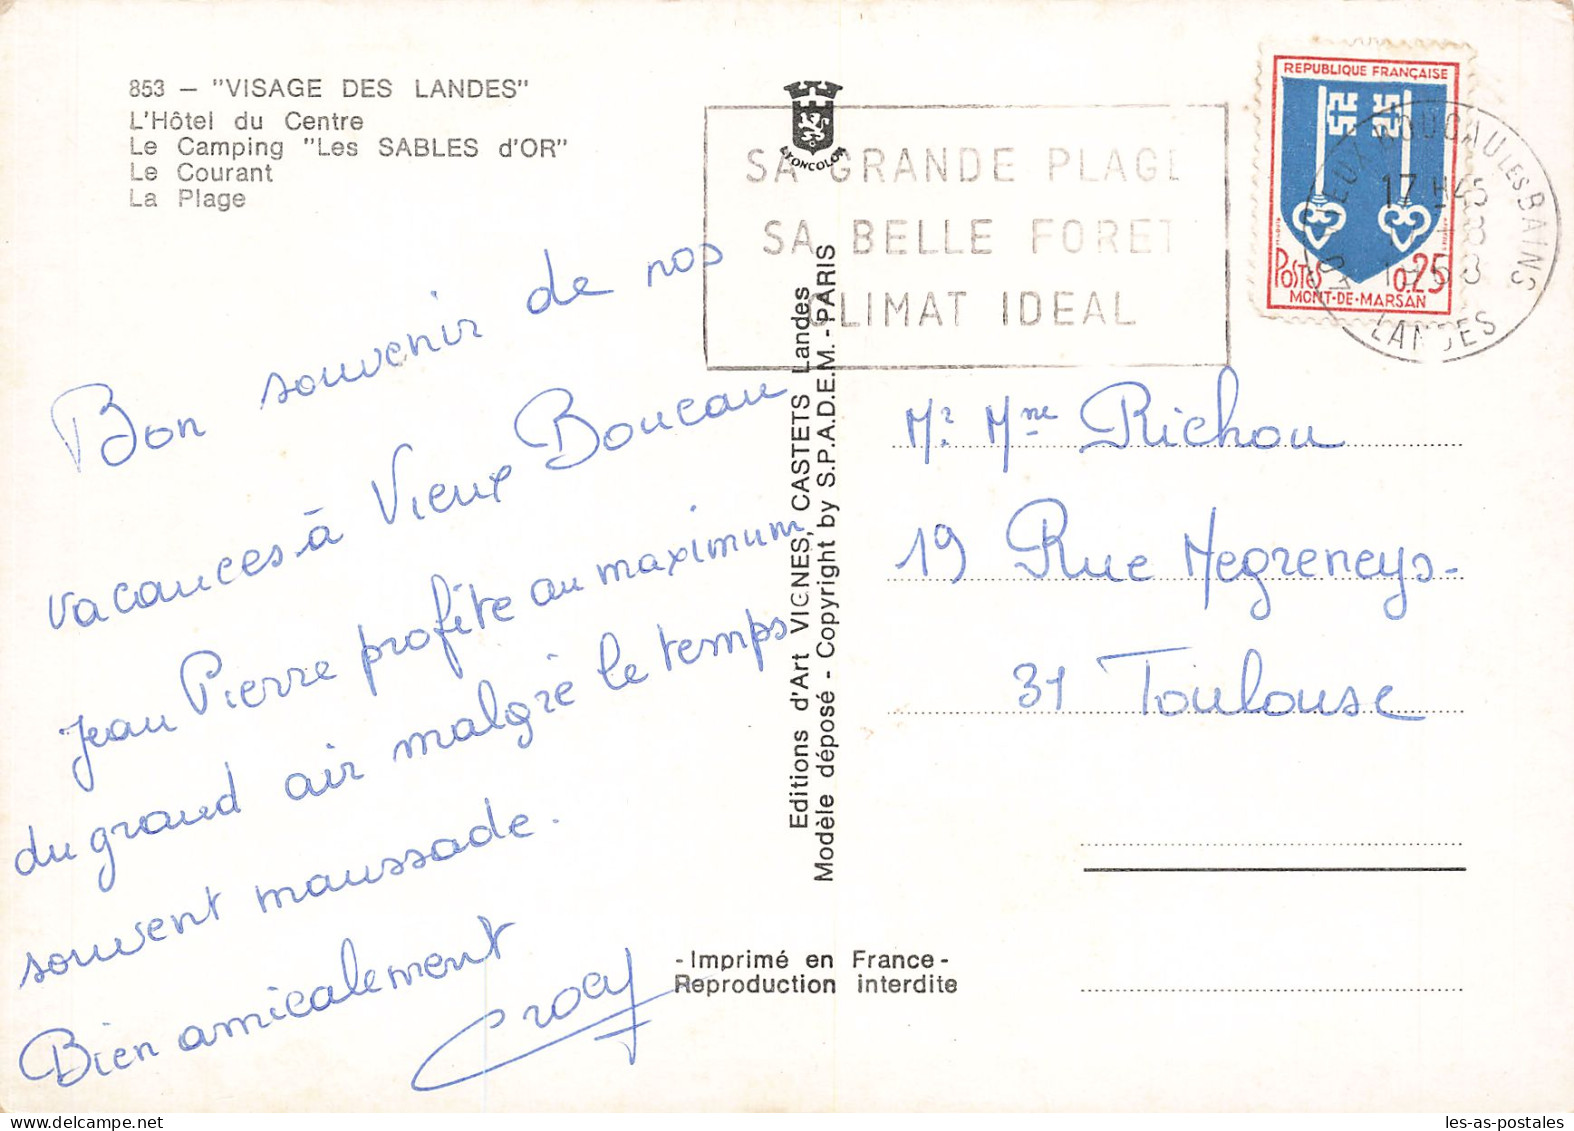 853 – "VISAGE DES LANDES"
L'Hôtel du Centre
Le Camping "Les SABLES d'OR"
Le Courant
La Plage
LYONCOLOR
SA GRANDE PLAGE
SA BELLE FORET
CLIMAT IDEAL
REPUBLIQUE FRANÇAISE
POSTES 0.25
MONT-DE-MARSAN
VIEUX BOUCAU LES BAINS
17 H45
LANDES
Bon souvenir de nos
vacances à Vieux Boucau
Jean Pierre profite au maximum
du grand air malgré le temps
souvent maussade.
Bien amicalement
Editions d'Art VIGNES, CASTETS Landes
Modèle déposé - Copyright by S.P.A.D.E.M. - PARIS
Mr Mme Richou
19 Rue Negreneys-
31 Toulouse
- Imprimé en France -
Reproduction interdite
les-as-postales